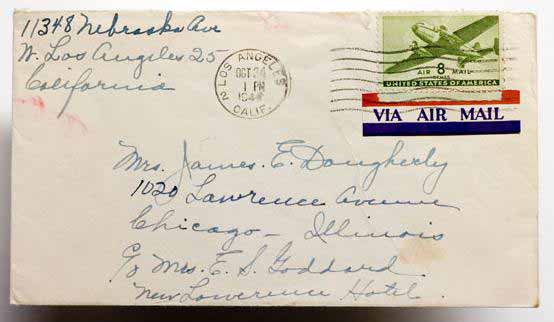 11348 Nebraska Ave
W. Los Angeles 25
California
LOS ANGELES
2
OCT 24
1 PM
1944
CALIF.
AIR 8 MAIL
UNITED STATES OF AMERICA
VIA AIR MAIL
Mrs. James. E. Dougherty
1020 Lawrence Avenue
Chicago - Illinois
c/o Mrs. E. S. Goddard
New Lawrence Hotel.